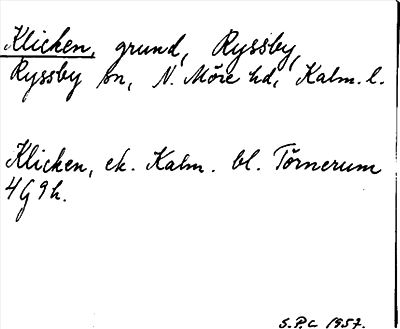 Klicken, grund, Ryssby,
Ryssby sn, N. Möre hd, Kalm. l.
Klicken, ek. Kalm. bl. Törnerum
4G9h.
S.P.C 1957.